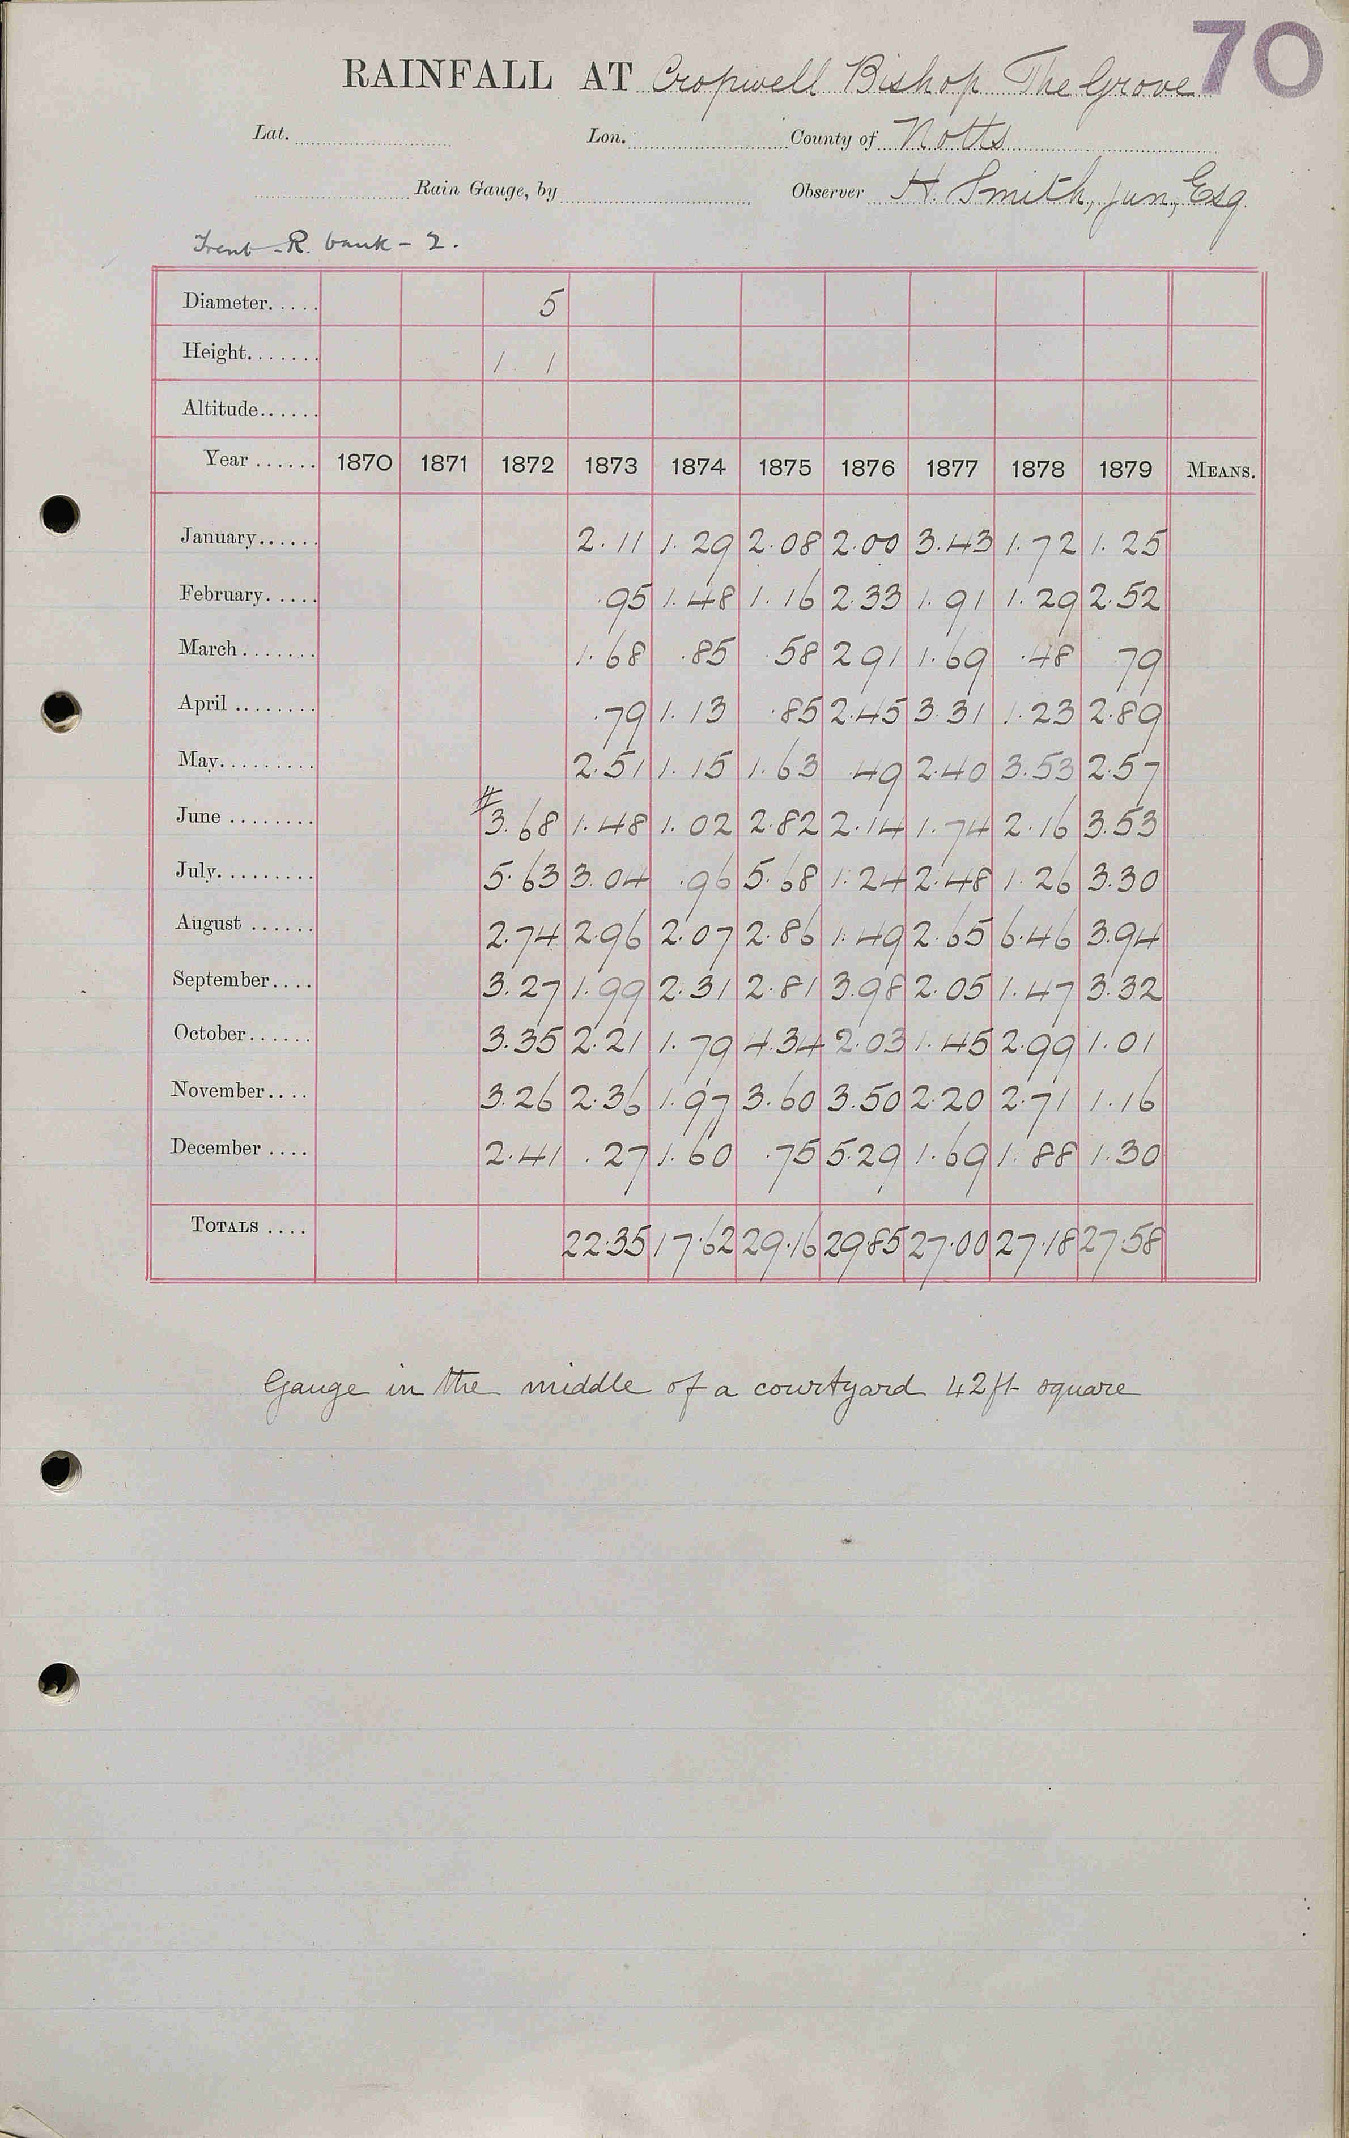 70
RAINFALL AT Cropwell Bishop The Grove
Lat. Lon. County of Notts
Rain Gauge, by Observer H. Smith, jun, Esq.
Trent - R. bank - 2.
Diameter..... 5
Height....... 1. 1
Altitude......
Year ...... 1870 1871 1872 1873 1874 1875 1876 1877 1878 1879 MEANS.
January...... 2.11 1.29 2.08 2.00 3.43 1.72 1.25
February..... .95 1.48 1.16 2.33 1.91 1.29 2.52
March....... 1.68 .85 .58 2.91 1.69 .48 79
April ........ .79 1.13 .85 2.45 3.31 1.23 2.89
May......... 2.51 1.15 1.63 .49 2.40 3.53 2.57
June ........ # 3.68 1.48 1.02 2.82 2.14 1.74 2.16 3.53
July......... 5.63 3.04 .96 5.68 1.24 2.48 1.26 3.30
August ...... 2.74 2.96 2.07 2.86 1.49 2.65 6.46 3.94
September.... 3.27 1.99 2.31 2.81 3.98 2.05 1.47 3.32
October...... 3.35 2.21 1.79 4.34 2.03 1.45 2.99 1.01
November.... 3.26 2.36 1.97 3.60 3.50 2.20 2.71 1.16
December .... 2.41 .27 1.60 .75 5.29 1.69 1.88 1.30
TOTALS .... 22.35 17.62 29.16 29.85 27.00 27.18 27.58
Gauge in the middle of a courtyard 42ft square